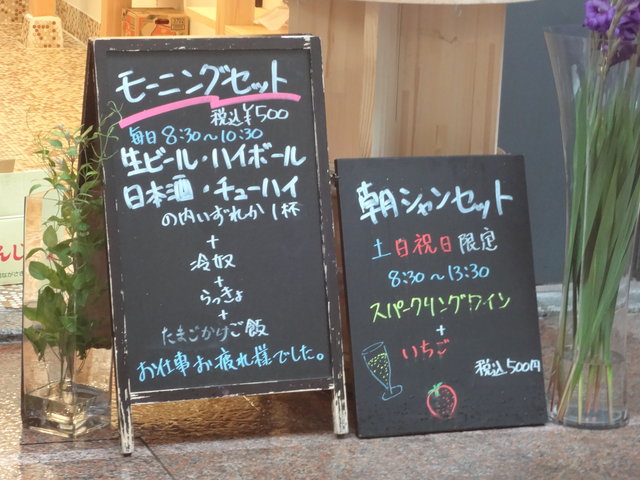 モーニングセット
税込¥500
毎日 8:30〜10:30
生ビール・ハイボール
日本酒・チューハイ
の内いずれか1杯
+
冷奴
+
らっきょ
+
たまごかけご飯
お仕事お疲れ様でした。
朝シャンセット
土日祝日限定
8:30〜13:30
スパークリングワイン
+
いちご
税込500円